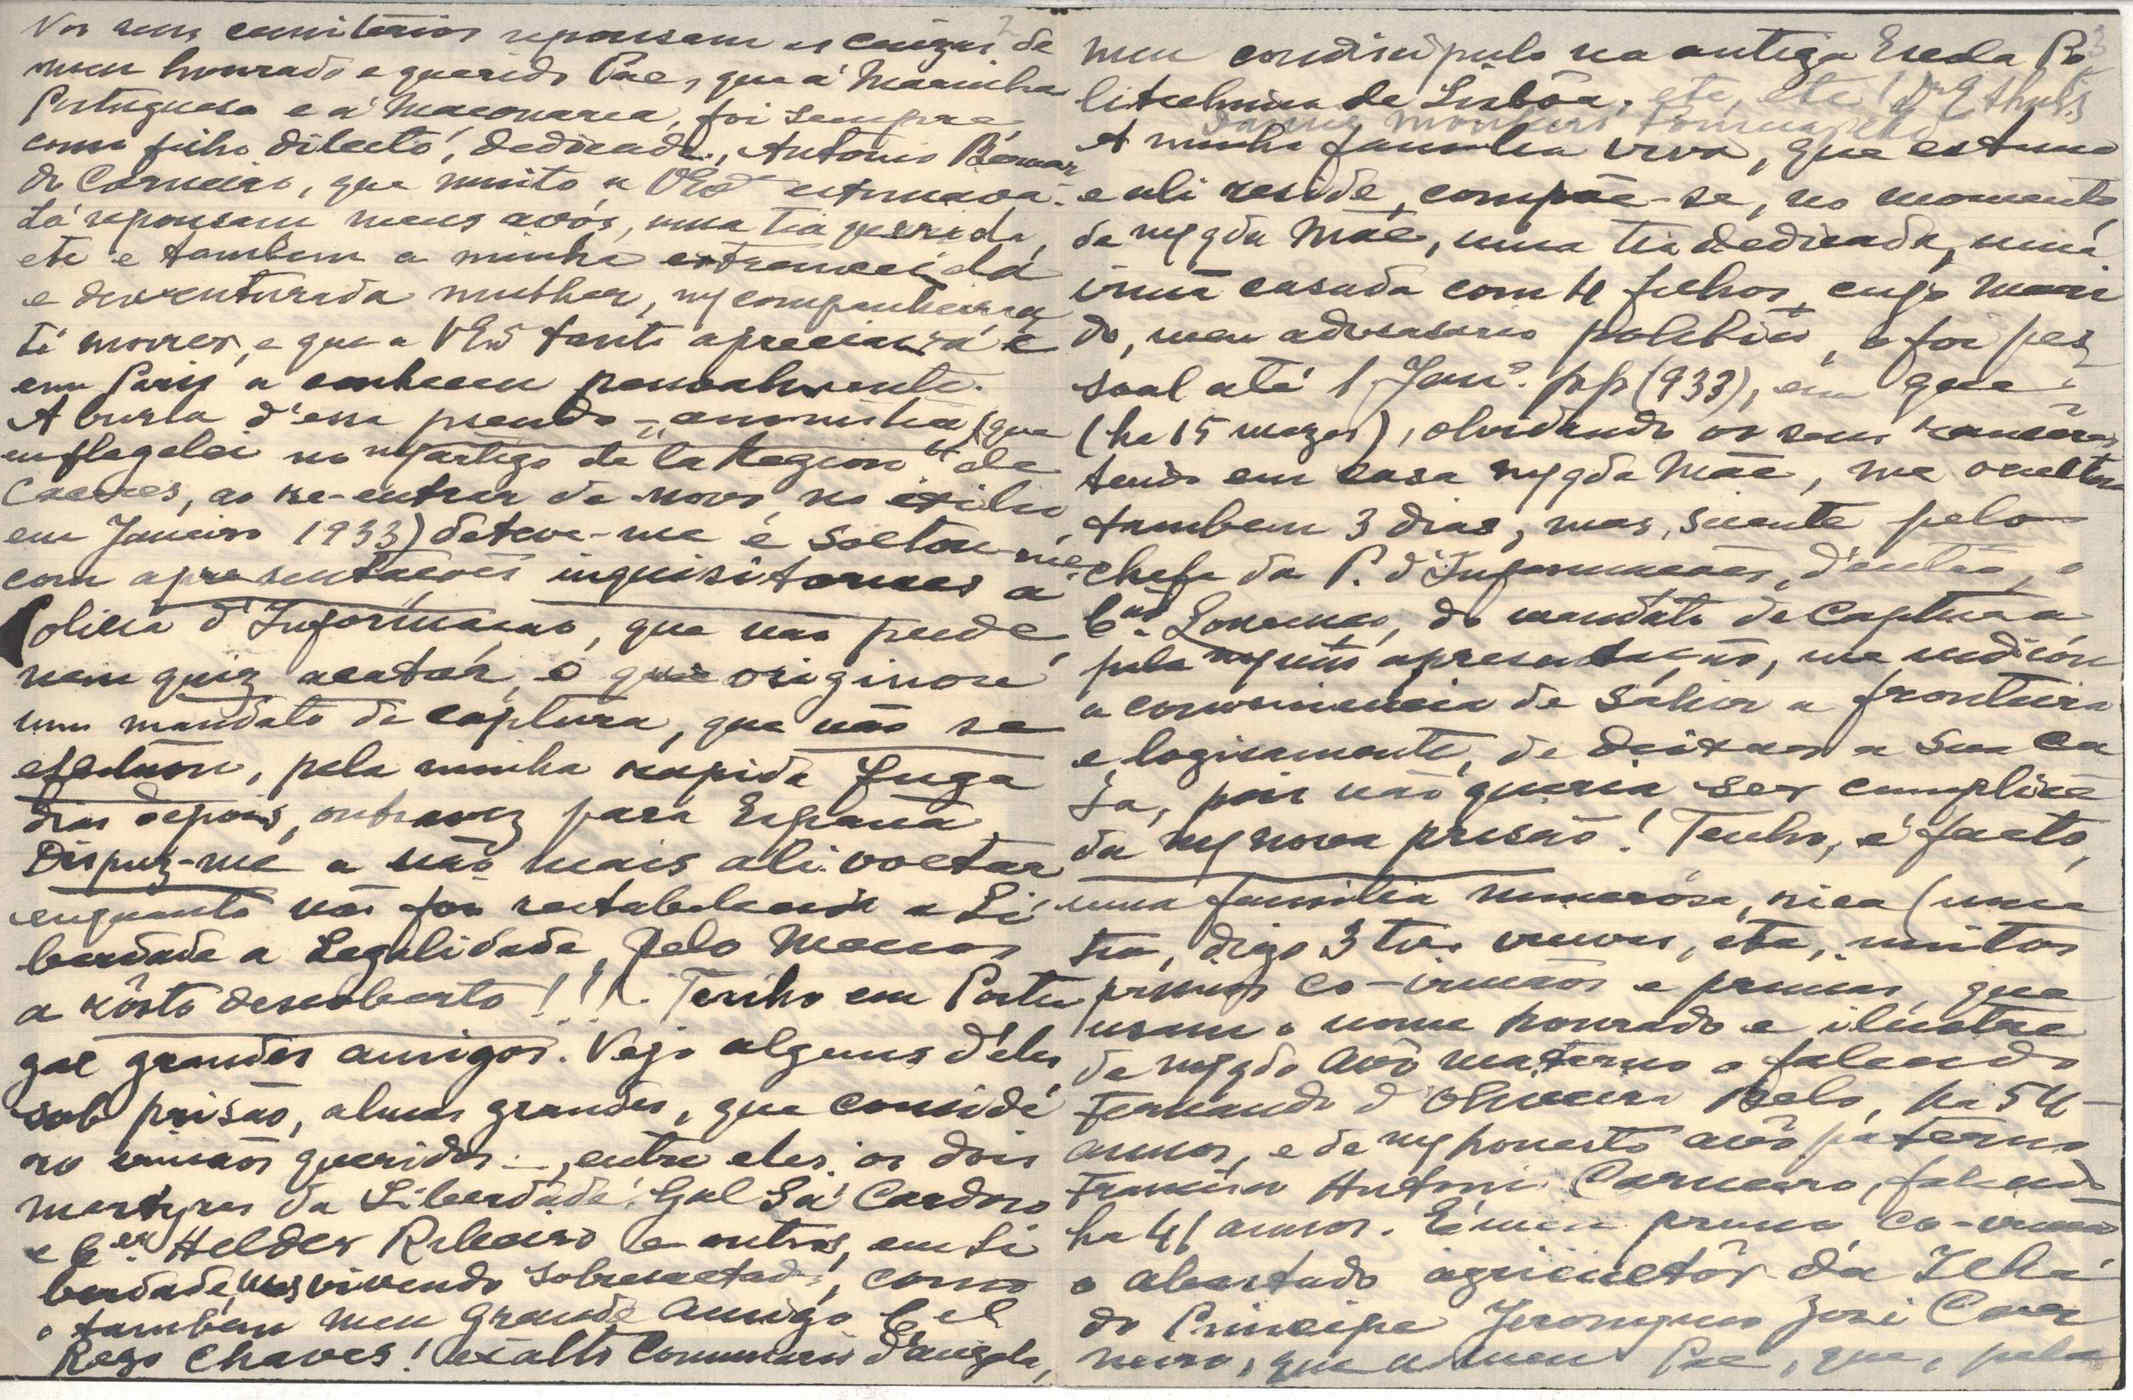 Nos seus cemiterios repousam as cinzas de
meu honrado e querido Pae, que á Marinha
Portuguesa e á Maçonaria, foi sempre,
como filho dilecto, dedicado, Antonio Bernar
do Carneiro, que muito a VExª estimava.
Lá repousam meus avós, uma tia querida,
etc e tambem a minha estremecida
e desventurada mulher, mª companheira
té morrer, e que a VExª tanto apreciava e
em Paris a conheceu pessoalmente.
A burla d'essa pseudo-"amnistia" (que
eu flagelei no mº artigo de "La Region" de
Caceres, ao re-entrar de novo, no exilio
em Janeiro 1933) deteve-me e soltou-me,
com apresentações inquisitoriaes a
Policia d'Informação, que não pude,
nem quiz acatar, o que originou
um mandato de captura, que não se
efectuou, pela minha rapida fuga
dias depois, outra vez para España.
Dispuz-me a não mais ali voltar
enquanto não fôr restabelecida a Li
berdade a Legalidade, pelo Menos
a rôsto descoberto!!!. Tenho em Portu
gal grandes amigos. Vejo alguns d'eles
sob prisão, almas grandes, que conside
ro irmãos queridos -, entre eles, os dois
martyres da Liberdade: Gal Sá Cardoso
e Cel. Helder Ribeiro e outros, em li
berdade, mas vivendo sobresaltados, como
o tambem meu grande amigo Cel
Rego Chaves! ex alto Commissario d'Angola,
3
meu condiscipulo na antiga Escola Po
litechnica de Lisbôa, etc, etc! Dr
A minha familia viva, que estimo
e ali reside, compõe-se, no momento,
de mª qda Mãe, uma tia dedicada, uma
irmã casada com 4 filhos, cujo mari
do, meu adversario politico, o foi pes
soal até 1 Janº. pp (933), em que
(ha 15 mezes), olvidando os seus rancôres,
tendo em casa mª qda Mãe, me ocultou
tambem 3 dias, mas, sciente pelo
chefe da P. d'Informações, d'então, o
Cap. Lourenço, do mandato de captura
pela mª não apresentação, me indicou
a conveniencia de sahir a fronteira
e logicamente, de deixar a sua ca
sa, pois não queria ser cumplice
da mª nova prisão! Tenho, é facto,
uma familia numerosa, rica (uma
tia, digo 3 tias viuvas, etc, muitos
primos co-irmãos e primas, que
usam o nome honrado e ilustre
de mº qdo Avô materno o falecido
Fernando d'Oliveira Belo, ha 54
annos, e de mº honesto avô paterno
Francisco Antonio Carneiro, falecido
ha 41 annos. É meu primo co-irmão
o abastado agricultôr da Ilha
do Principe Jeronymo José Car
neiro, que meu Pae, que, pela